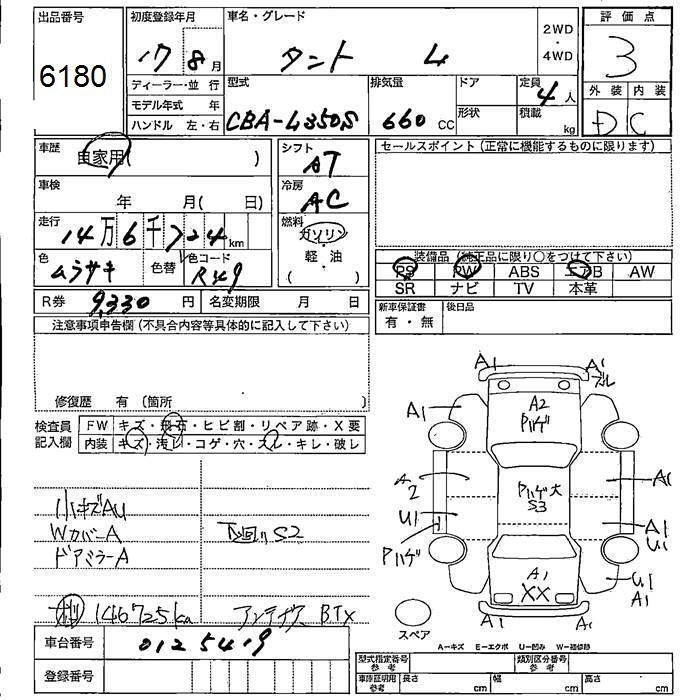 出品番号
6180
初度登録年月
17 8月
車名・グレード
タント L
2WD
・
4WD
評価点
3
外装 内装
D C
ディーラー・並行
モデル年式 年
ハンドル 左・右
型式
CBA-L350S
排気量
660 CC
ドア
形状
定員
4人
積載
kg
車歴
自家用( )
シフト
AT
車検
年 月( 日)
冷房
AC
走行
14万6千724km
燃料
ガソリン
軽・油
( )
色
ムラサキ
色替
色コード
R49
R券 9,330 円
名変期限 月 日
セールスポイント(正常に機能するものに限ります)
装備品(純正品に限り○をつけて下さい)
PS PW ABS エアB AW
SR ナビ TV 本革
新車保証書
有・無
後日品
注意事項申告欄(不具合内容等具体的に記入して下さい)
修復歴 有(箇所
検査員
記入欄
FW キズ・飛石・ヒビ割・リペア跡・X要
内装 キズ・汚レ・コゲ・穴・スレ・キレ・破レ
小キズAU
WカバーA
ドアミラーA
下廻りS2
146725km
BTX
車台番号 0125419
登録番号
A1 A1
ズレ
A1
A2
Pハゲ
A2
U1
Pハゲ
Pハゲ大
S3
A1
A1
U1
A1
XX
U1
A1
A1 A1
スペア
A-キズ E-エクボ U-凹み W-補修跡
型式指定番号
参考
類別区分番号
参考
車庫証明用
参考
長さ cm
幅 cm
高さ cm